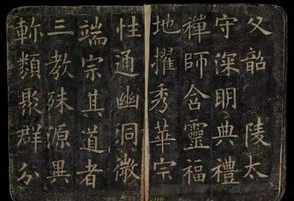 父韶陵太
守深明典禮
禪師含靈福
地擢秀華宗
性通幽洞澈
端宗其道者
三教殊源異
軫類聚群分